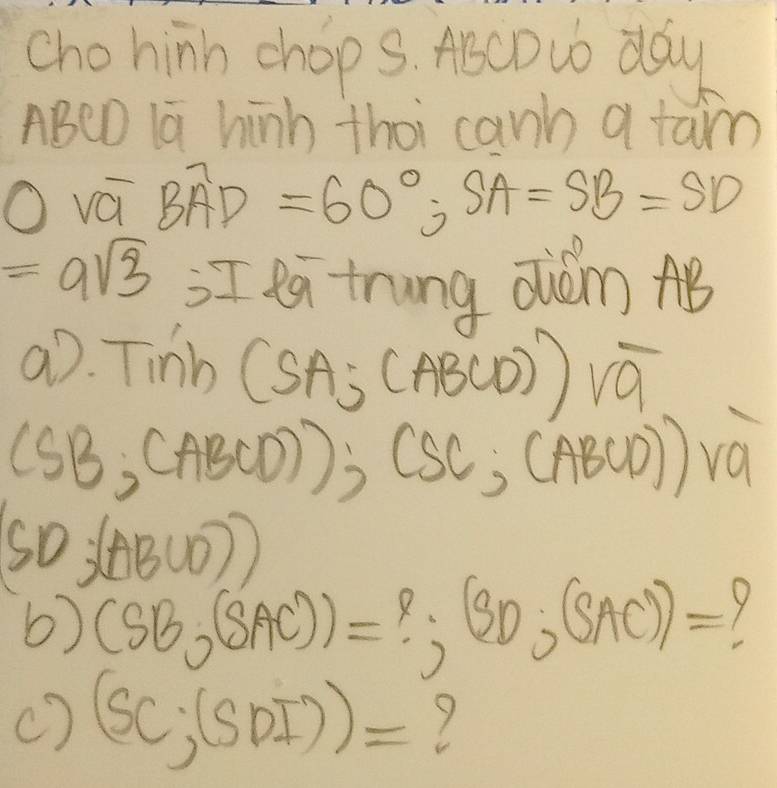 Cho hình chóp S. ABCD có đáy
ABCD là hình thoi cạnh a tâm
O và BAD = 60°; SA = SB = SD
= a√3 ; I là trung điểm AB
a). Tính (SA; (ABCD)) và
(SB; (ABCD)); (SC; (ABCD)) và
(SD; (ABCD))
b) (SB; (SAC)) = ?; (SD; (SAC)) = ?
c) (SC; (SDI)) = ?